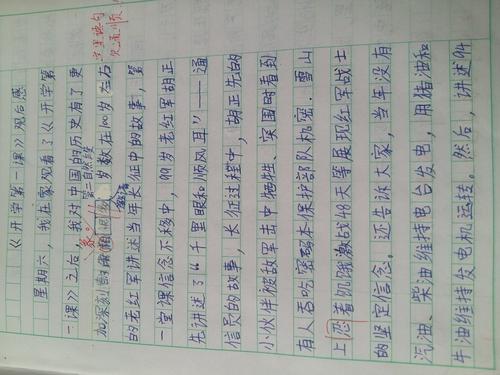 《开学第一课》观后感
星期六，我在家观看了《开学第
一课》之后，我对中国的历史有了更
加深刻 岁数在100岁左右
的老红军讲述当年长征中的故事，第
一堂课信念不移中，99岁老红军胡正
先讲述了“千里眼和顺风耳”——通
信员的故事，长征过程中，胡正先的
小伙伴被敌军击中牺牲、突围时看到
有人吞吃密码本保护部队机密．雪山
上忍着饥饿激战48天等展现红军战士
的坚定信念。还告诉大家，当年没有
汽油、柴油维持电台发电，用猪油和
牛油维持发电机运转。然后，讲述94
第二自然段
欠通顺